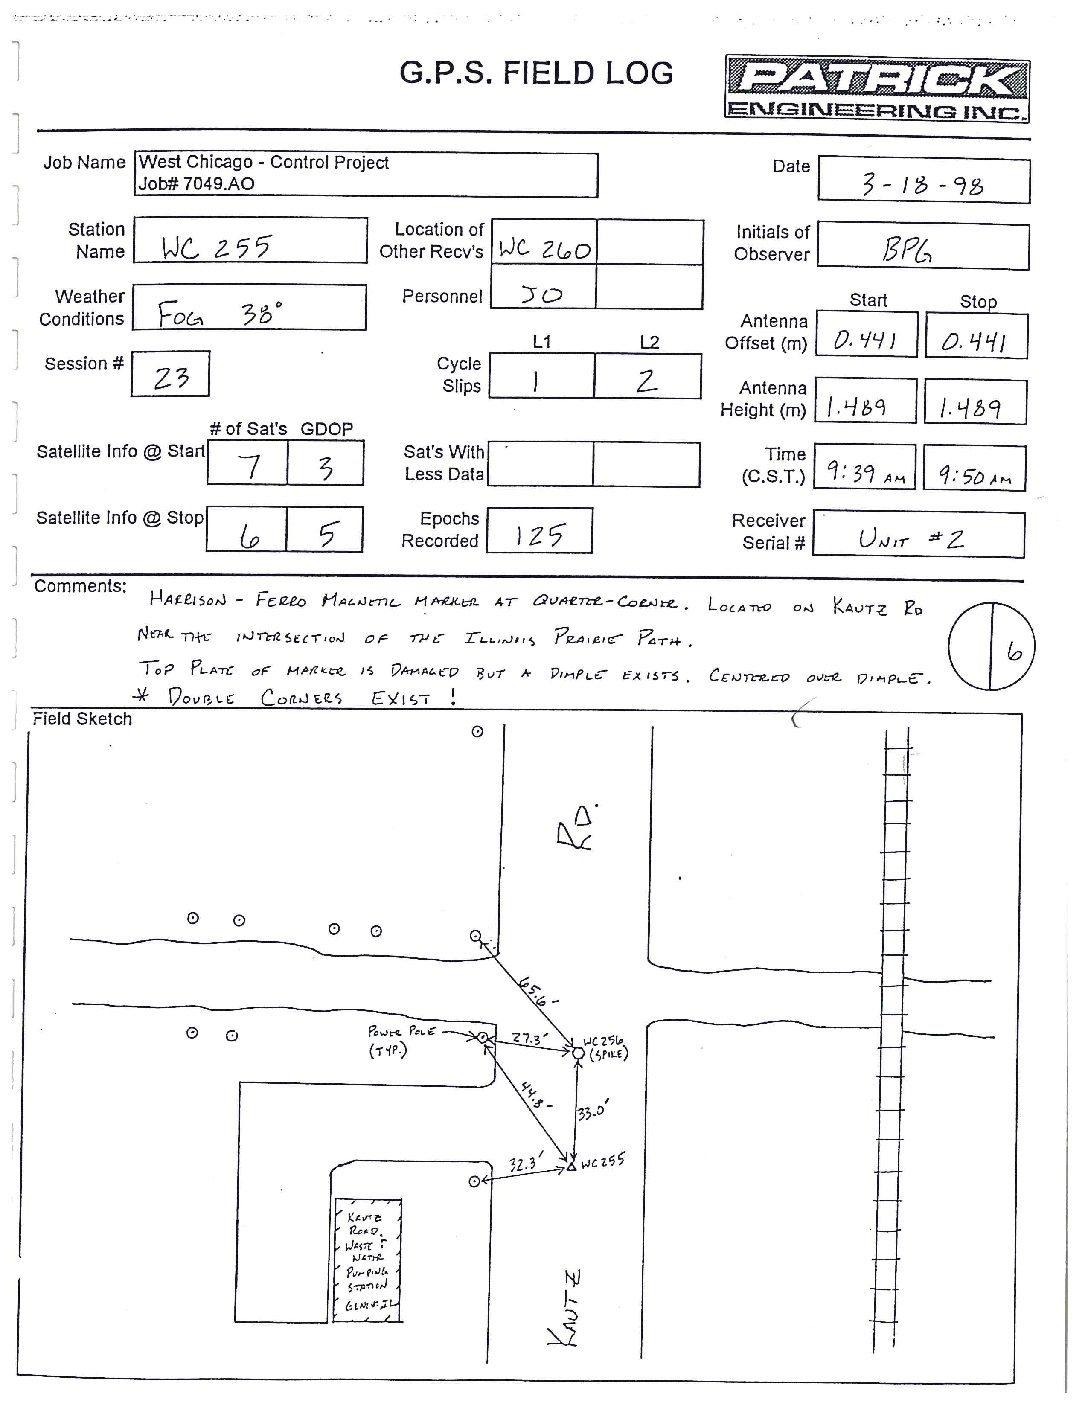 G.P.S. FIELD LOG
PATRICK
ENGINEERING INC.
Job Name West Chicago - Control Project
Job# 7049.AO
Date 3-18-98
Station Name WC 255
Location of Other Recv's WC 260
Initials of Observer BPG
Weather Conditions FOG 38°
Personnel JO
Start Stop
Antenna Offset (m) 0.441 0.441
Session # 23
L1 L2
Cycle Slips 1 2
Antenna Height (m) 1.489 1.489
# of Sat's GDOP
Satellite Info @ Start 7 3
Sat's With Less Data
Time (C.S.T.) 9:39 AM 9:50 AM
Satellite Info @ Stop 6 5
Epochs Recorded 125
Receiver Serial # UNIT #2
Comments: HARRISON - FERRO MAGNETIC MARKER AT QUARTER-CORNER. LOCATED ON KAUTZ RD
NEAR THE INTERSECTION OF THE ILLINOIS PRAIRIE PATH.
TOP PLATE OF MARKER IS DAMAGED BUT A DIMPLE EXISTS. CENTERED OVER DIMPLE.
* DOUBLE CORNERS EXIST !
6
Field Sketch
RD.
65.6'
POWER POLE
(TYP.)
27.3'
WC256
(SPIKE)
44.8'
33.0'
32.3'
WC255
KAUTZ
ROAD
WASTE
WATER
PUMPING
STATION
KAUTZ